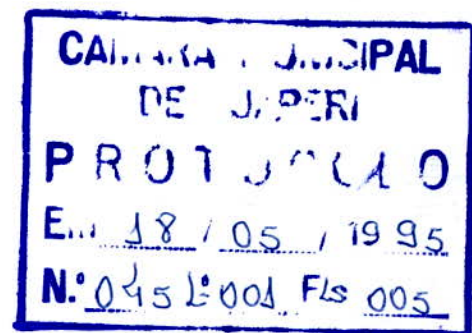 CAMARA MUNICIPAL
DE JAPERI
PROTOCOLO
Em 18 / 05 / 1995
N.º 045 Lº 001 Fls 005